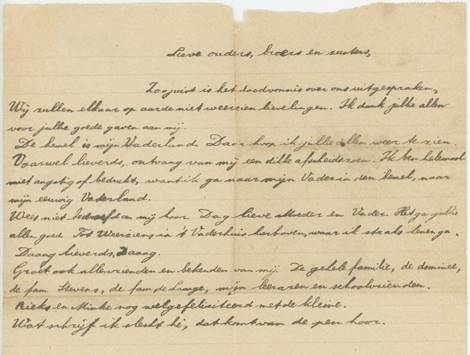 Lieve ouders, broers en zusters,
Zoojuist is het doodvonnis over ons uitgesproken,
Wij zullen elkaar op aarde niet weerzien lievelingen. Ik dank jullie allen
voor jullie goede gaven aan mij.
De hemel is mijn Vaderland Daar hoop ik jullie allen weer te zien.
Vaarwel lieverds, ontvang van mij een dikke afscheidszoen. Ik ben helemaal
niet angstig of bedrukt, want ik ga naar mijn Vader in den hemel, naar
mijn eeuwig Vaderland.
Wees niet bedroefd om mij hoor. Dag lieve Moeder en Vader. Het ga jullie
allen goed Tot Weerziens in 't Vaderhuis hierboven, waar ik straks
Daag lieverds, Daag.
Groet ook allen vrienden en bekenden van mij De gehele familie, de dominee,
de fam Stevens, de fam de Lange, mijn leeraren en schoolvrienden.
Rieks en Minke nog wel gefeliciteerd met de kleine.
Wat schrijf ik slecht hè, dat komt van de pen hoor.